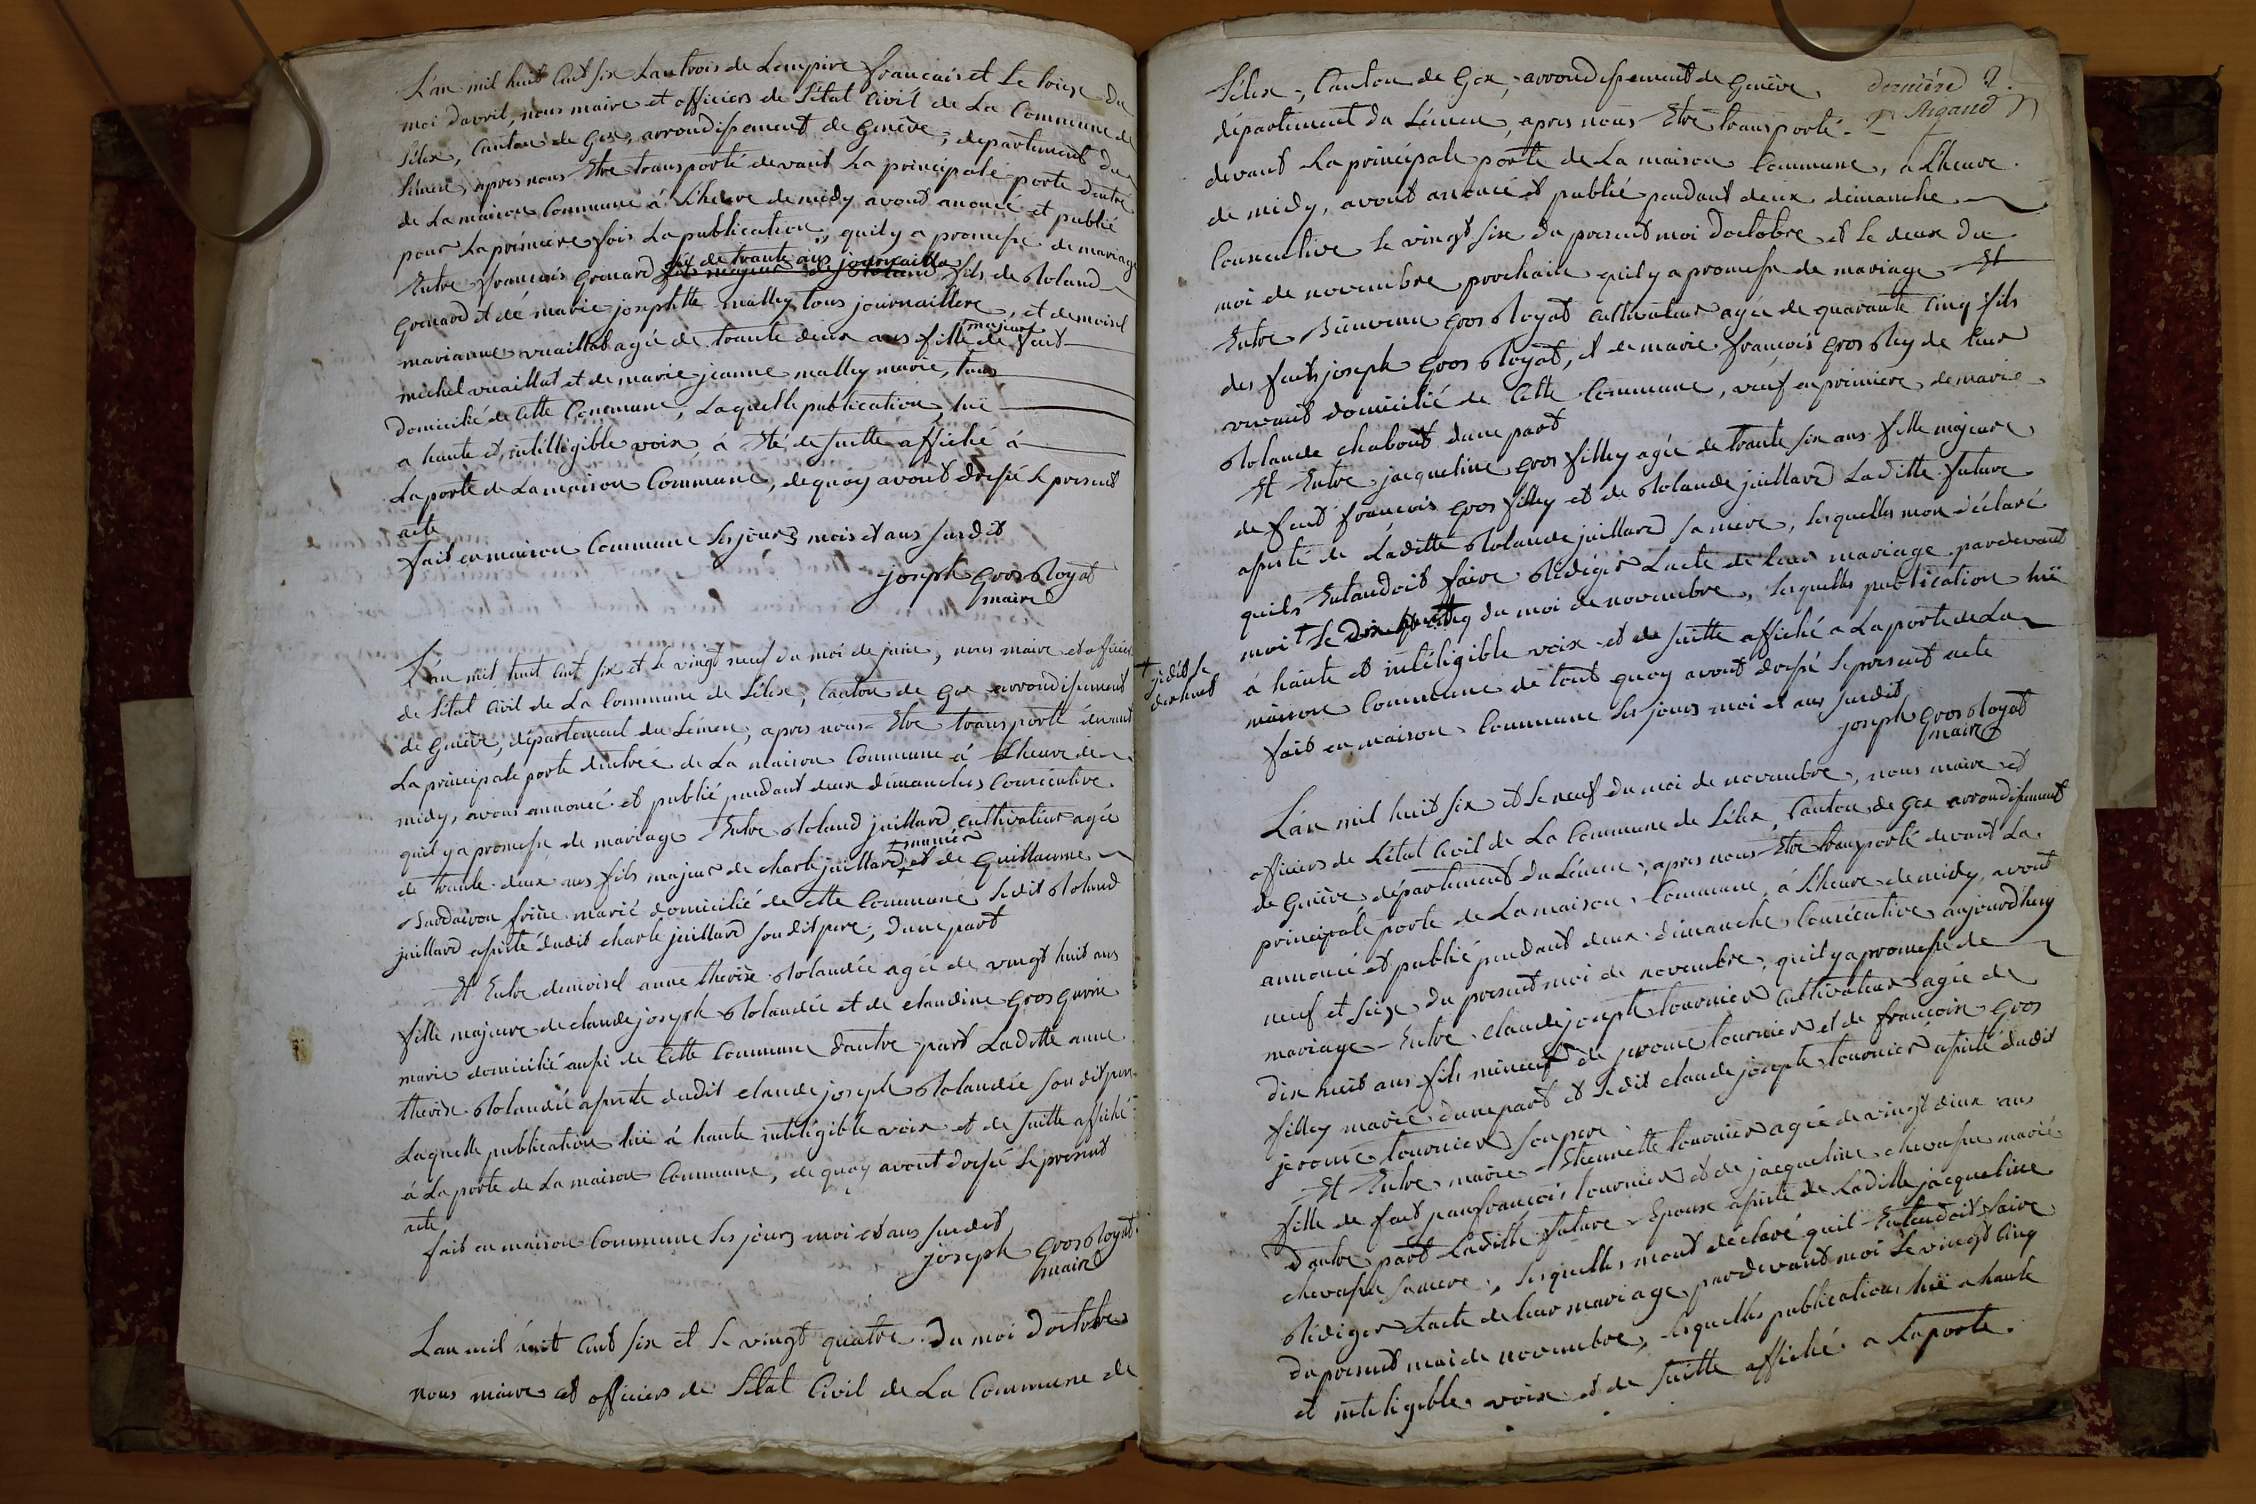 L'an mil huit Cent six Lantrois de Lempire francais et Le treize du
moi davril, nous maire et officiers de l'état Civil de La Commune de
Lélex, Canton de Gex, arrondissement de Genève, departement du
Léman, apres nous Etre transporté devant La principale porte dentré
de La maison Commune à L'heure de midy avont anoncé et publié
pour La première fois La publication, quil y a promesse de mariage
Entre francois Grenard agé de trante ans journailler fils de Roland
Grenard et de marie josephtte malley tous journaillere, et demoisel
marianne vuaillat agé de trante deux ans fille majeur de feut
michel vuaillat et de marie jeanne malley marié, tous
domicilié de Cette Commune, Laquelle publication, luë
a haute et intelligible voix, à Eté de suitte affiché à
La porte de La maison Commune, de quoy avont dressé Le present
acte
fait en maison Commune Les jours mois et ans susdit
joseph Gros Royat
maire
L'an mil huit Cent six et le vingt neuf du moi de juin, nous maire et officiers
de l'état Civil de La Commune de Lélex, Canton de Gex arrondissement
de Genève, département du Léman, apres nous Etre transporté devant
La principale porte dentrée de La maison Commune à L'heure de
midy, avons annoncé et publié pendant deux dimanches Consécutive
quil y a promesse de mariage Entre Roland juillard cultivateur agée
de trante deux ans fils majeur de charle juillard et de Guillaume
marié domicilié de Cette Commune Le dit Roland
juillard assisté dudit charle juillard son dit pere, d'une part
Et Entre demoisel anne therèse Rolandée agée de vingt huit ans
fille majeure de claude joseph Rolandée et de claudine Gros Gurin
marie domicilié aussi de Cette Commune d'autre part Laditte anne
therèse Rolandée assisté dudit claude joseph Rolandée son dit pere
Laquelle publication luë à haute inteligible voix et de suitte affiché
à La porte de La maison Commune, de quoy avont dressé Le present
acte
fait en maison Commune Les jours moi et ans susdit
joseph Gros Royat
maire
L'an mil huit Cent six et Le vingt quatre du moi d'octobre
nous maire et officiers de L'état Civil de La Commune de
derniére
Lélex, Canton de Gex, arrondissement de Genève
département du Léman, apres nous Etre transporté
devant La principale porte de La maison Commune, a Lheure
de midy, avont anoncé et publié pendant deux dimanche
Consecutive le vingt six du present moi doctobre et le deux du
moi de novembre prochain quil y a promesse de mariage Et
Entre Bienvenu Gros Royat cultivateur agée de quarante Cinq fils
des feuts joseph Gros Royat, et de marie francois Gros Rey de leur
vivant domicilié de Cette Commune, veuf en première de marie
Rolande chabout d'une part
Et Entre jacqueline Gros filley agée de trante six ans fille majeure
de feut francois Gros filley et de Rolande juillard Laditte future
assisté de Laditte Rolande juillard sa mere, Lesquelles mon déclaré
quils Entandoit faire Rédiger Lacte de leur mariage pardevant
moi † Le du moi de novembre, Lesquelles publication luë
à haute et inteligible voix et de suitte affiché a La porte de La
maison Commune de tout quoy avont dressé Le present acte
fait en maison Commune Les jours moi et ans susdit
joseph Gros Royat
maire
L'an mil huit six et Le neuf du moi de novembre, nous maire et
officiers de L'état Civil de La Commune de Lélex, Canton de Gex arrondissement
de Genève, département du Léman, apres nous Etre transporté devant La
principale porte de La maison Commune, à L'heure de midy, avont
annoncé et publié pendant deux dimanche Consécutive aujourdhuy
neuf et seize du present moi de novembre, quil y a promesse de
mariage Entre claude joseph tournier cultivateur agée de
dix huit ans fils mineur de jerome tournier et de francoise Gros
filley marié d'une part et Le dit claude joseph tournier assisté dudit
jerome tournier son pere
Et Entre marie Etiennette tournier agée de vingt deux ans
fille de feut jean francois tournier et de jacqueline chevassu marié
D'autre part Laditte future Epouse assisté de Laditte jacqueline
chevassu sa mere, Lesquelles mont déclaré quil Entendoit faire
Rédiger Lacte de leur mariage pardevant moi Le vingt Cinq
du present moi de novembre, Lesquelles publications luë a haute
et inteligible voix et de suitte affiché a La porte